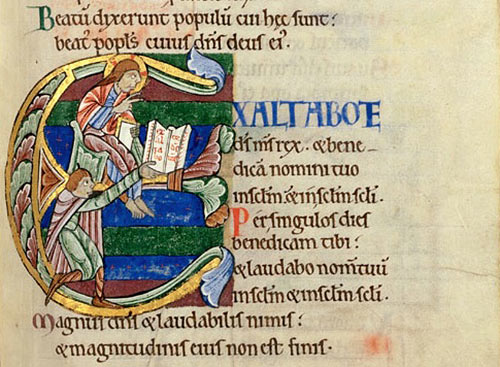 Beatū dixerunt populū cui hęc sunt:
beat' popl's cuius dn̄s deus ei'.
EXALTABO TE
ds̄ ms̄ rex. & bene-
dicā nomini tuo
in sclm̄ & in sclm̄ scli.
Per singulos dies
benedicam tibi:
& laudabo nom̄ tuū
in sclm̄ & in sclm̄ scli.
Magnus dn̄s & laudabilis nimis:
& magnitudinis eius non est finis.